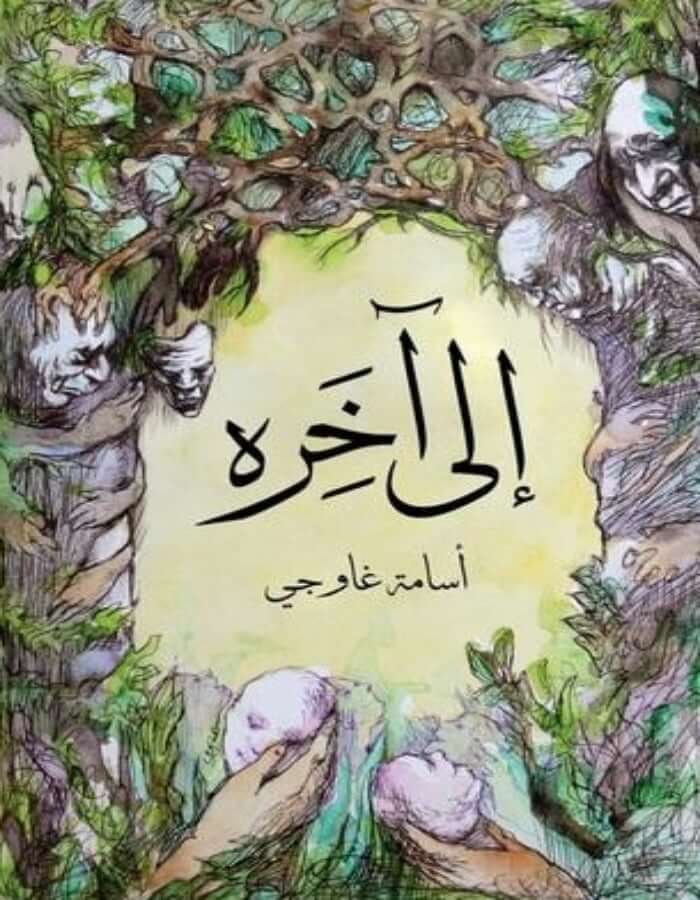 إلى آخَرِه
أسامة غاوجي